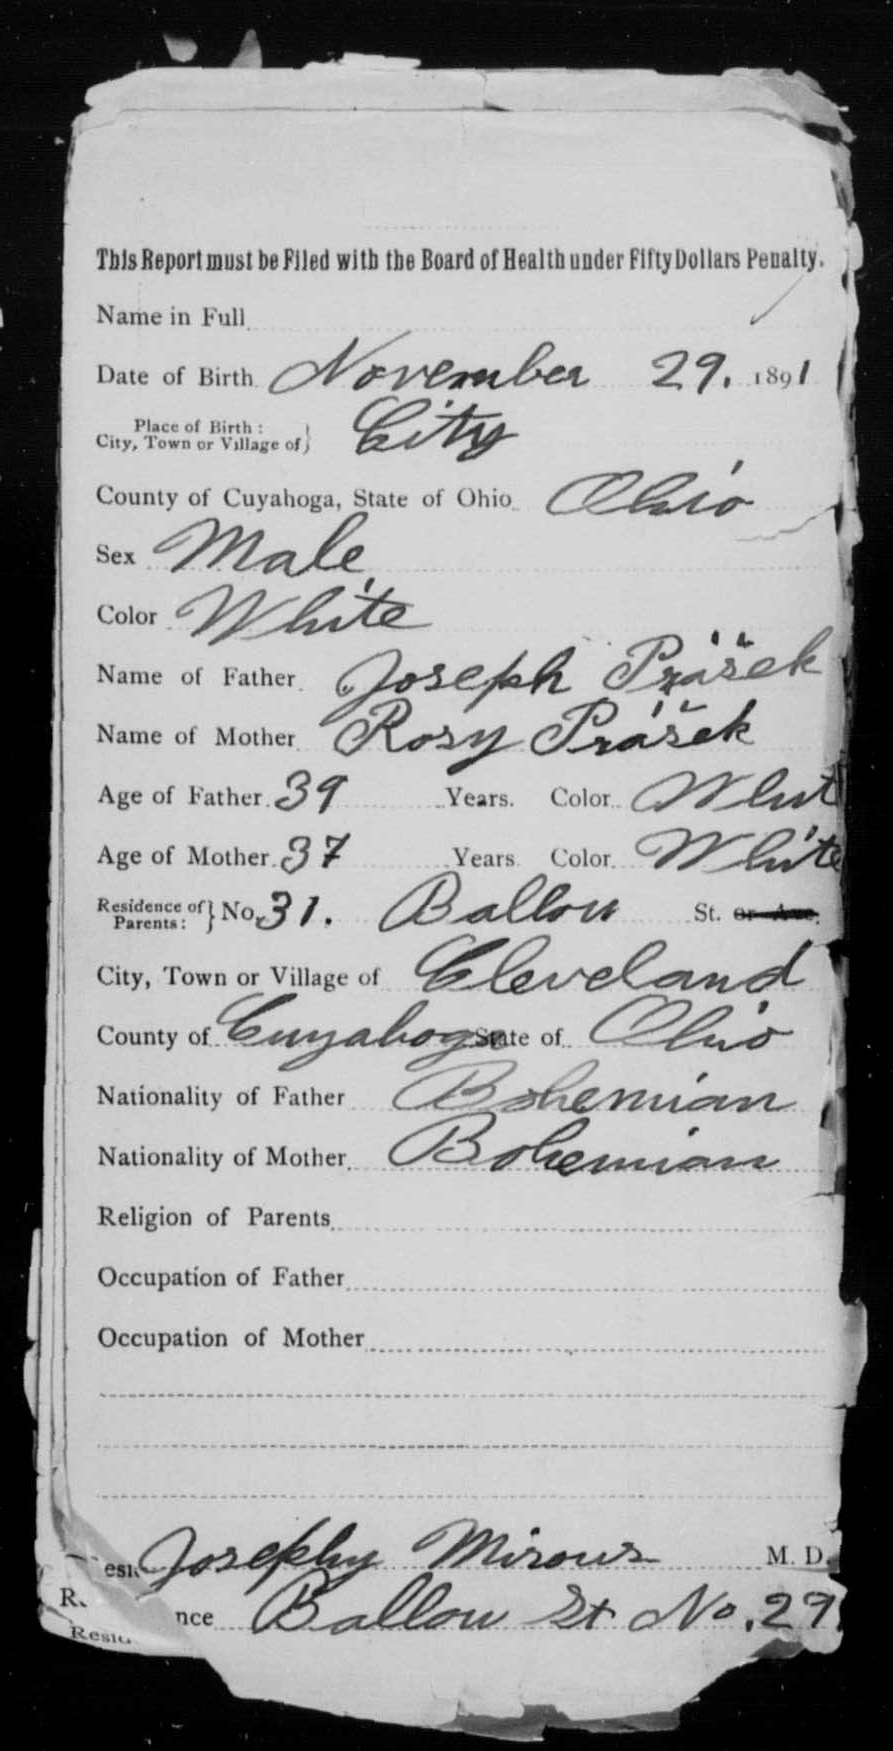 This Report must be Filed with the Board of Health under Fifty Dollars Penalty.
Name in Full
Date of Birth November 29. 1891
Place of Birth:
City, Town or Village of } City
County of Cuyahoga, State of Ohio Ohio
Sex Male
Color White
Name of Father Joseph Prášek
Name of Mother Rosy Prášek
Age of Father 39 Years. Color White
Age of Mother 37 Years Color White
Residence of Parents: } No. 31. Ballou St. or Ave.
City, Town or Village of Cleveland
County of Cuyahoga State of Ohio
Nationality of Father Bohemian
Nationality of Mother Bohemian
Religion of Parents
Occupation of Father
Occupation of Mother
Josephy Mirous M. D.
nce Ballou St No. 29